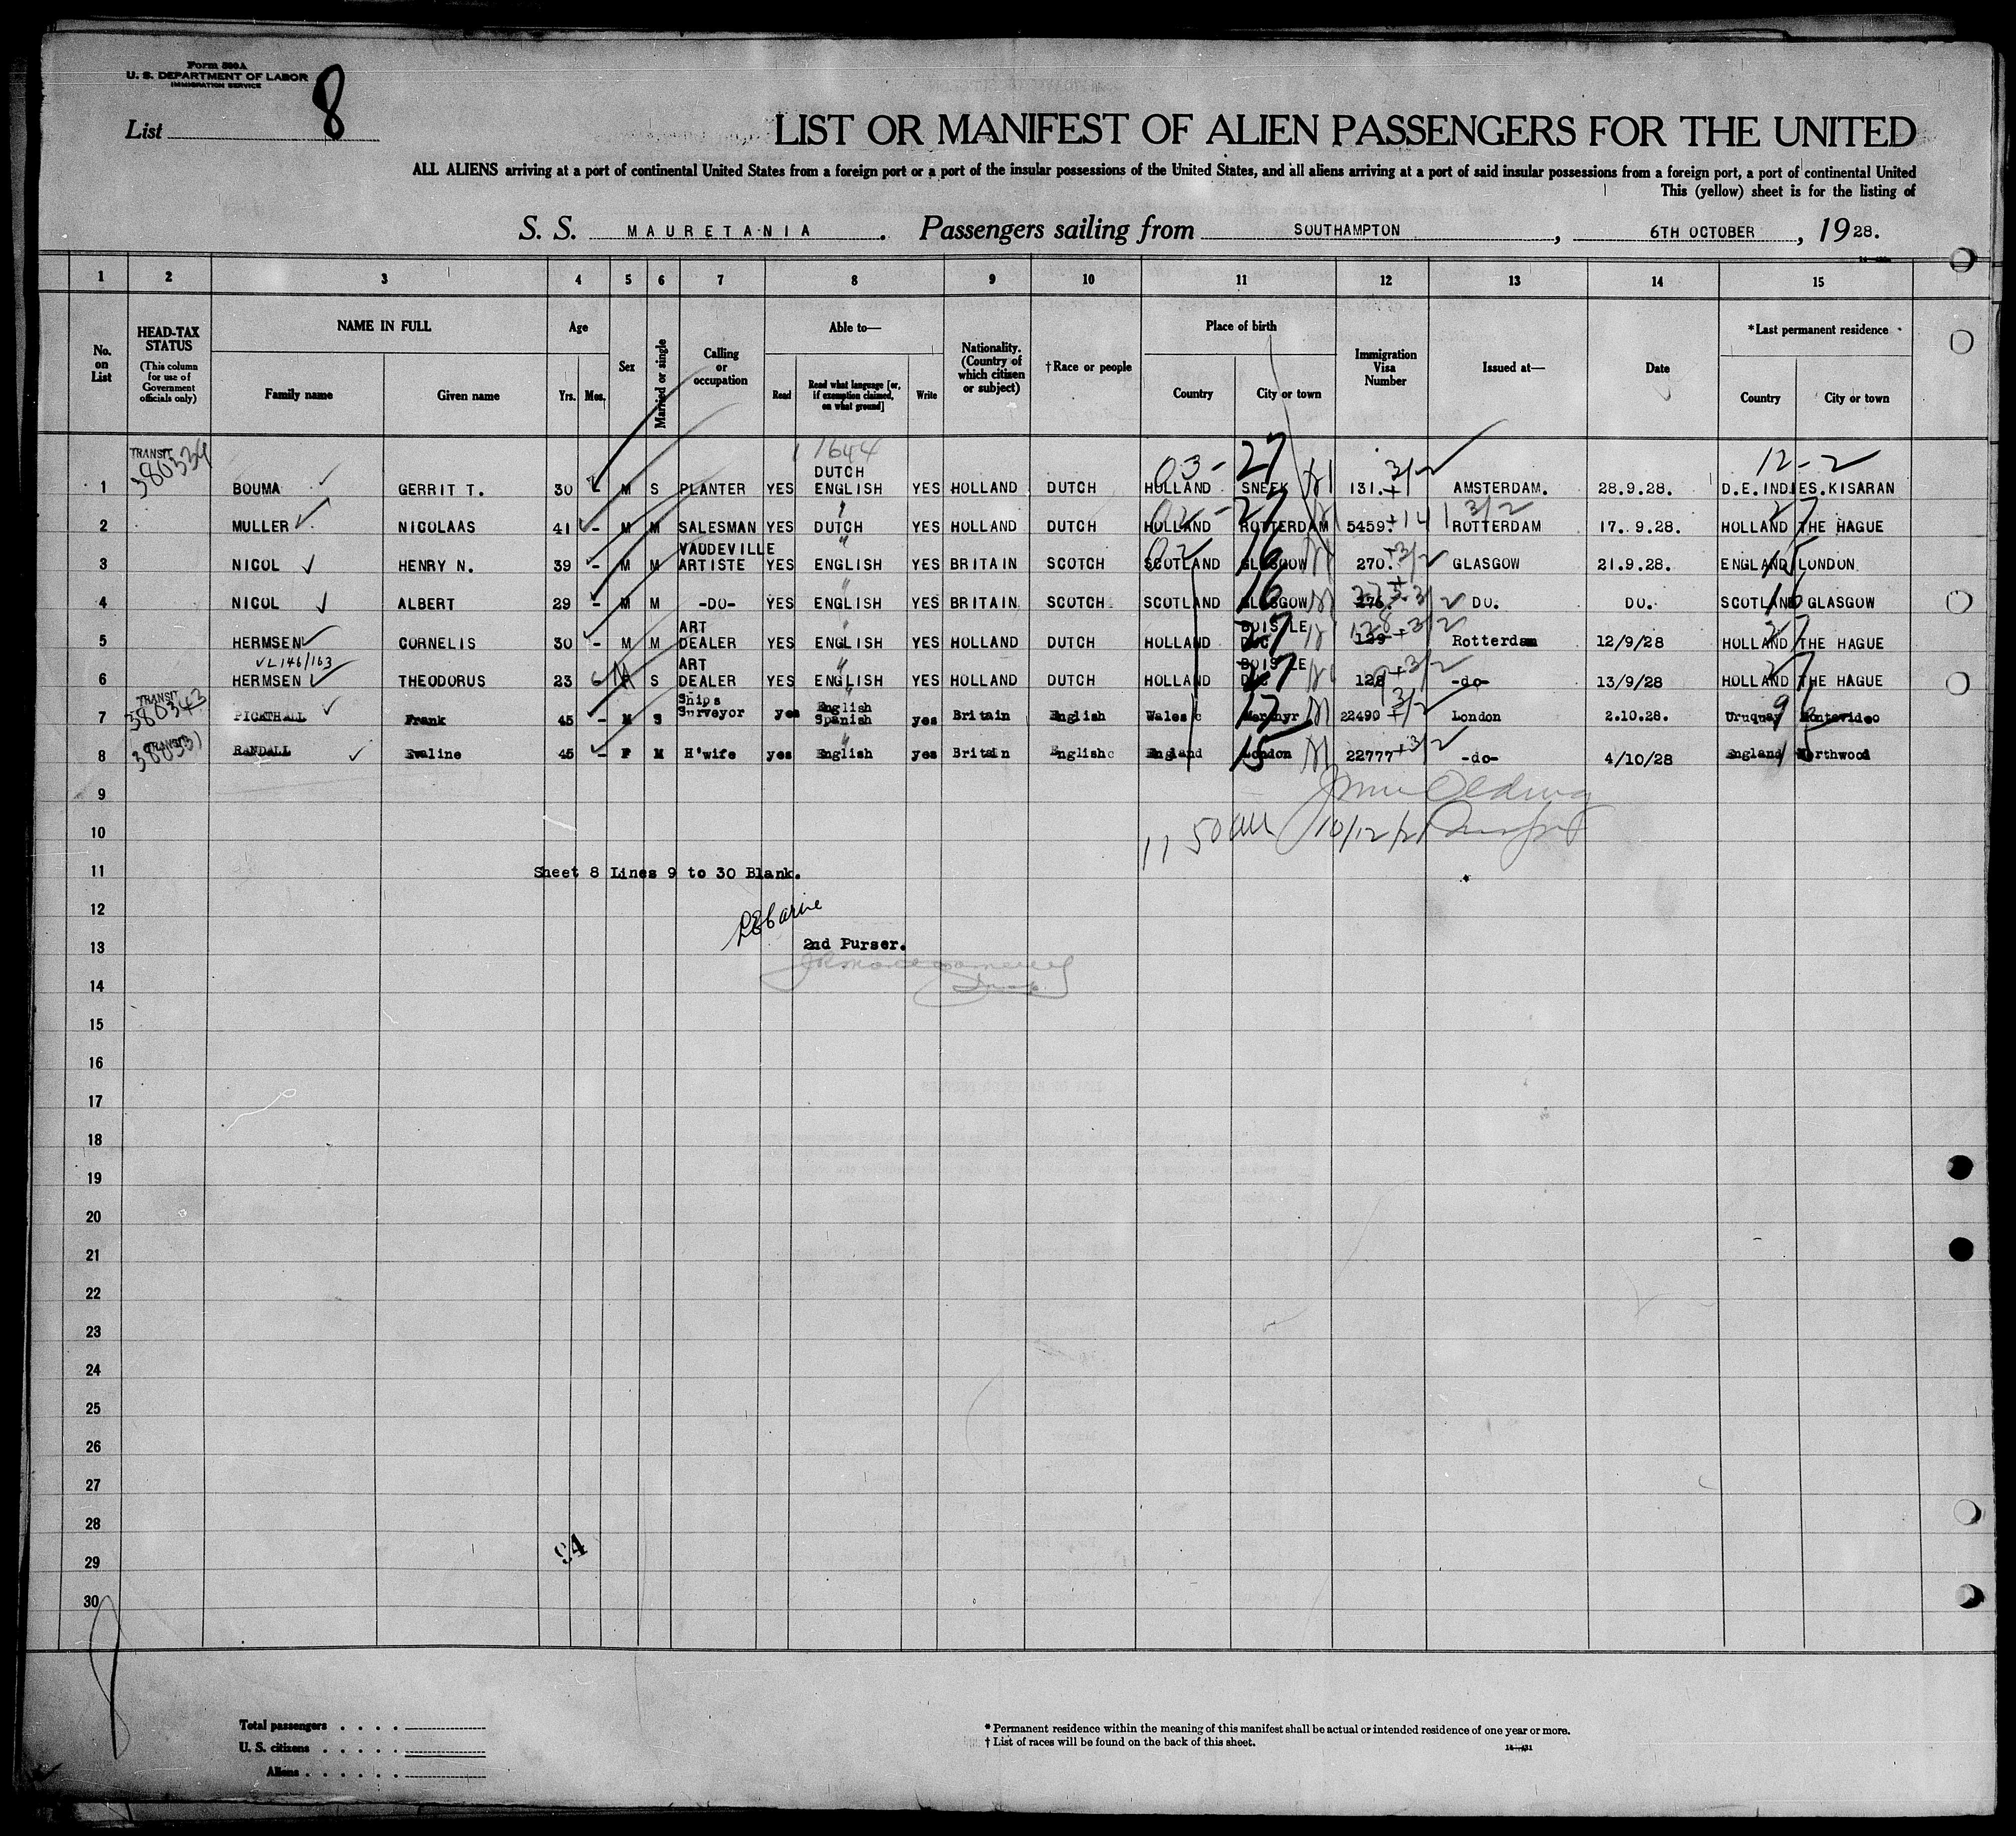 Form 500A
U. S. DEPARTMENT OF LABOR
IMMIGRATION SERVICE
List 8
LIST OR MANIFEST OF ALIEN PASSENGERS FOR THE UNITED
ALL ALIENS arriving at a port of continental United States from a foreign port or a port of the insular possessions of the United States, and all aliens arriving at a port of said insular possessions from a foreign port, a port of continental United
This (yellow) sheet is for the listing of
S. S. MAURETANIA. Passengers sailing from SOUTHAMPTON, 6TH OCTOBER, 1928.
1 2 3 4 5 6 7 8 9 10 11 12 13 14 15
No. on List
HEAD-TAX STATUS (This column for use of Government officials only)
NAME IN FULL Family name Given name
Age Yrs. Mos.
Sex
Married or single
Calling or occupation
Able to— Read Read what language [or, if exemption claimed, on what ground] Write
Nationality. (Country of which citizen or subject)
†Race or people
Place of birth Country City or town
Immigration Visa Number
Issued at—
Date
*Last permanent residence Country City or town
1644
TRANSIT 380334 03-27 3/2 12-2
1 BOUMA GERRIT T. 30 - M S PLANTER YES DUTCH ENGLISH YES HOLLAND DUTCH HOLLAND SNEEK 131. AMSTERDAM. 28.9.28. D.E.INDIES.KISARAN
2 MULLER NICOLAAS 41 - M M SALESMAN YES DUTCH YES HOLLAND DUTCH HOLLAND ROTTERDAM 5459. ROTTERDAM 17. 9.28. HOLLAND THE HAGUE
3 NICOL HENRY N. 39 - M M VAUDEVILLE ARTISTE YES ENGLISH YES BRITAIN SCOTCH SCOTLAND GLASGOW 270. GLASGOW 21.9.28. ENGLAND LONDON
4 NICOL ALBERT 29 - M M -DO- YES ENGLISH YES BRITAIN SCOTCH SCOTLAND GLASGOW 276. DO. DO. SCOTLAND GLASGOW
5 HERMSEN CORNELIS 30 - M M ART DEALER YES ENGLISH YES HOLLAND DUTCH HOLLAND 27 128 139 Rotterdam 12/9/28 HOLLAND THE HAGUE
VL146/163
6 HERMSEN THEODORUS 23 6 M S ART DEALER YES ENGLISH YES HOLLAND DUTCH HOLLAND 27 -do- 13/9/28 HOLLAND THE HAGUE
TRANSIT 380343
7 PICKTHALL Frank 45 - M S Ships Surveyor yes English Spanish yes Britain English Wales Merthyr 22490 London 2.10.28. Uruguay Montevideo
TRANSIT 380331
8 RANDALL Evaline 45 - F M H'wife yes English yes Britain English England London 22777 -do- 4/10/28 England Northwood
9
10
11 Sheet 8 Lines 9 to 30 Blank.
12
13 2nd Purser.
14
15
16
17
18
19
20
21
22
23
24
25
26
27
28
29 94
30
8
Total passengers . . . .
U. S. citizens . . . . .
Aliens . . . . . .
* Permanent residence within the meaning of this manifest shall be actual or intended residence of one year or more.
† List of races will be found on the back of this sheet.